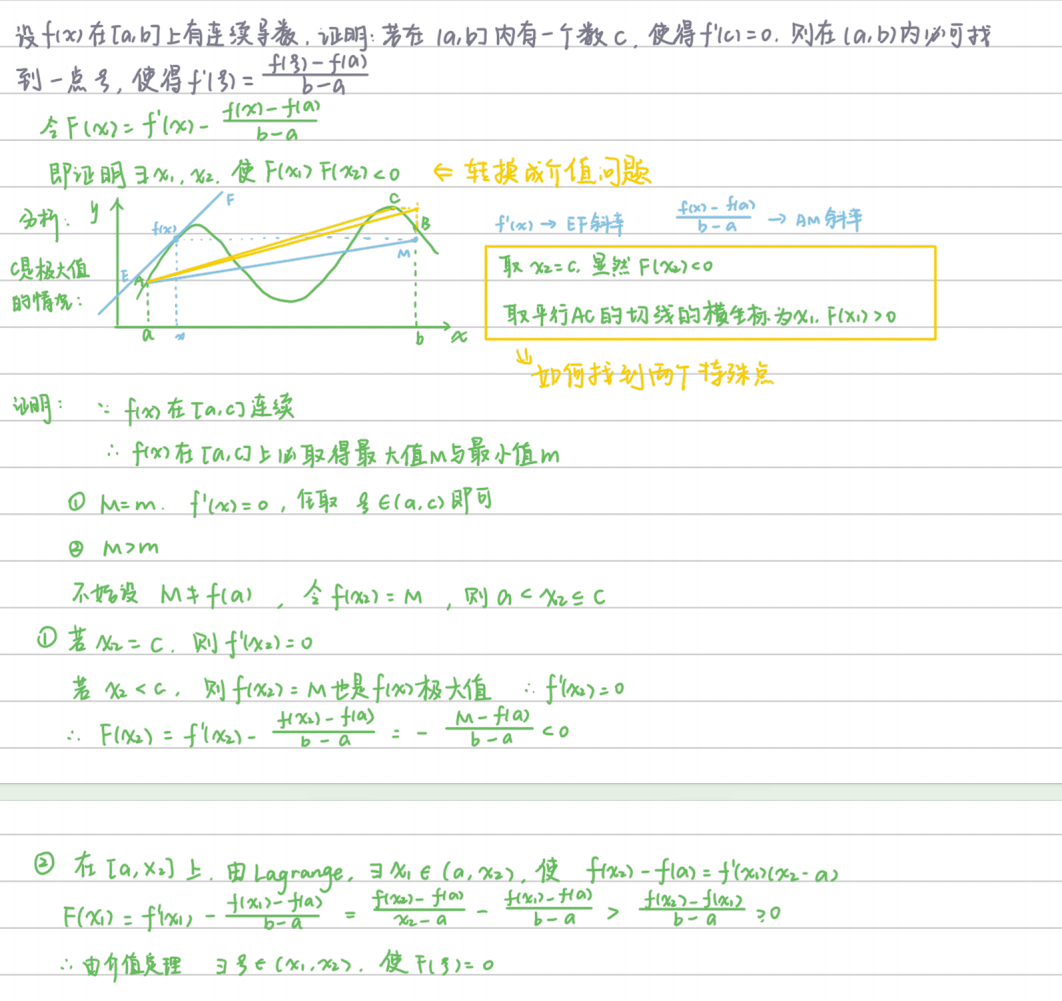 设f(x)在[a,b]上有连续导数,证明:若在(a,b]内有一个数c,使得f'(c)=0,则在(a,b)内必可找
到一点ξ,使得f'(ξ)= (f(ξ)-f(a))/(b-a)
令F(x)=f'(x)- (f(x)-f(a))/(b-a)
即证明∃x₁,x₂,使F(x₁)F(x₂)<0 ⇐ 转换成介值问题
分析:
c是极大值
的情况:
y
F
f(x)
E
A
C
B
M
a
x
b
x
f'(x)→EF斜率 (f(x)-f(a))/(b-a)→AM斜率
取x₂=c,显然F(x₂)<0
取平行AC的切线的横坐标为x₁,F(x₁)>0
如何找到两个特殊点
证明: ∵ f(x)在[a,c]连续
∴ f(x)在[a,c]上必取得最大值M与最小值m
① M=m. f'(x)=0,任取ξ∈(a,c)即可
② M>m
不妨设 M≠f(a),令f(x₂)=M,则a<x₂≤c
① 若x₂=c,则f'(x₂)=0
若x₂<c,则f(x₂)=M也是f(x)极大值 ∴f'(x₂)=0
∴ F(x₂)=f'(x₂)- (f(x₂)-f(a))/(b-a) = - (M-f(a))/(b-a) <0
② 在[a,x₂]上,由Lagrange,∃x₁∈(a,x₂),使 f(x₂)-f(a)=f'(x₁)(x₂-a)
F(x₁)=f'(x₁)- (f(x₁)-f(a))/(b-a) = (f(x₂)-f(a))/(x₂-a) - (f(x₁)-f(a))/(b-a) > (f(x₂)-f(x₁))/(b-a) ≥0
∴由介值定理 ∃ξ∈(x₁,x₂),使F(ξ)=0